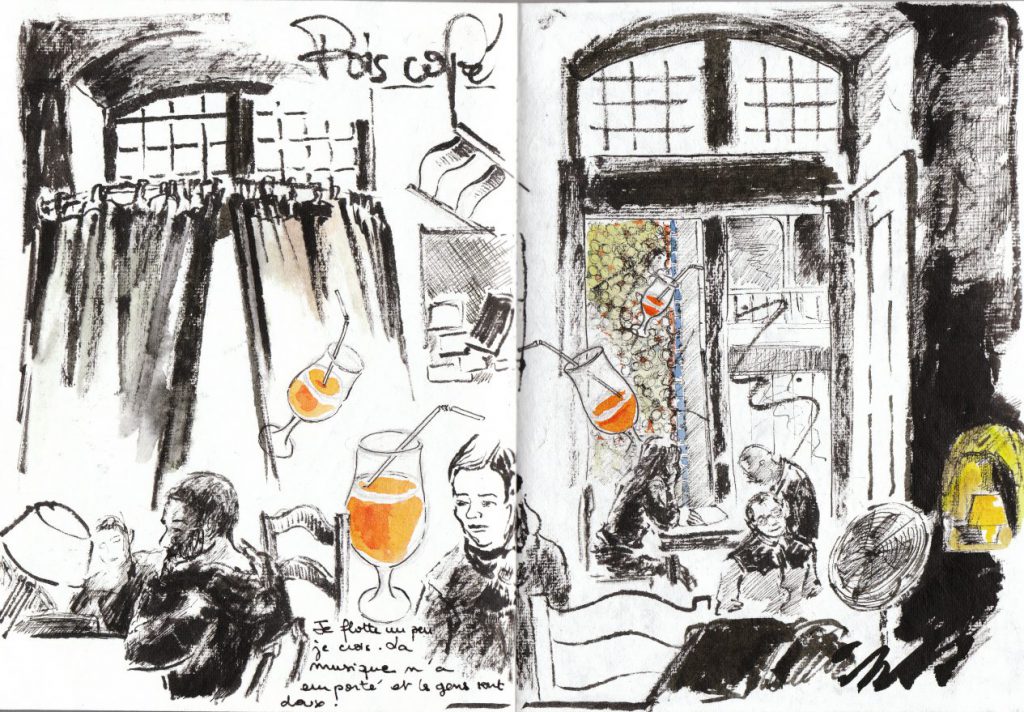 Pois café
Je flotte un peu
je crois. La
musique m'a
emporté et les gens sont
doux !